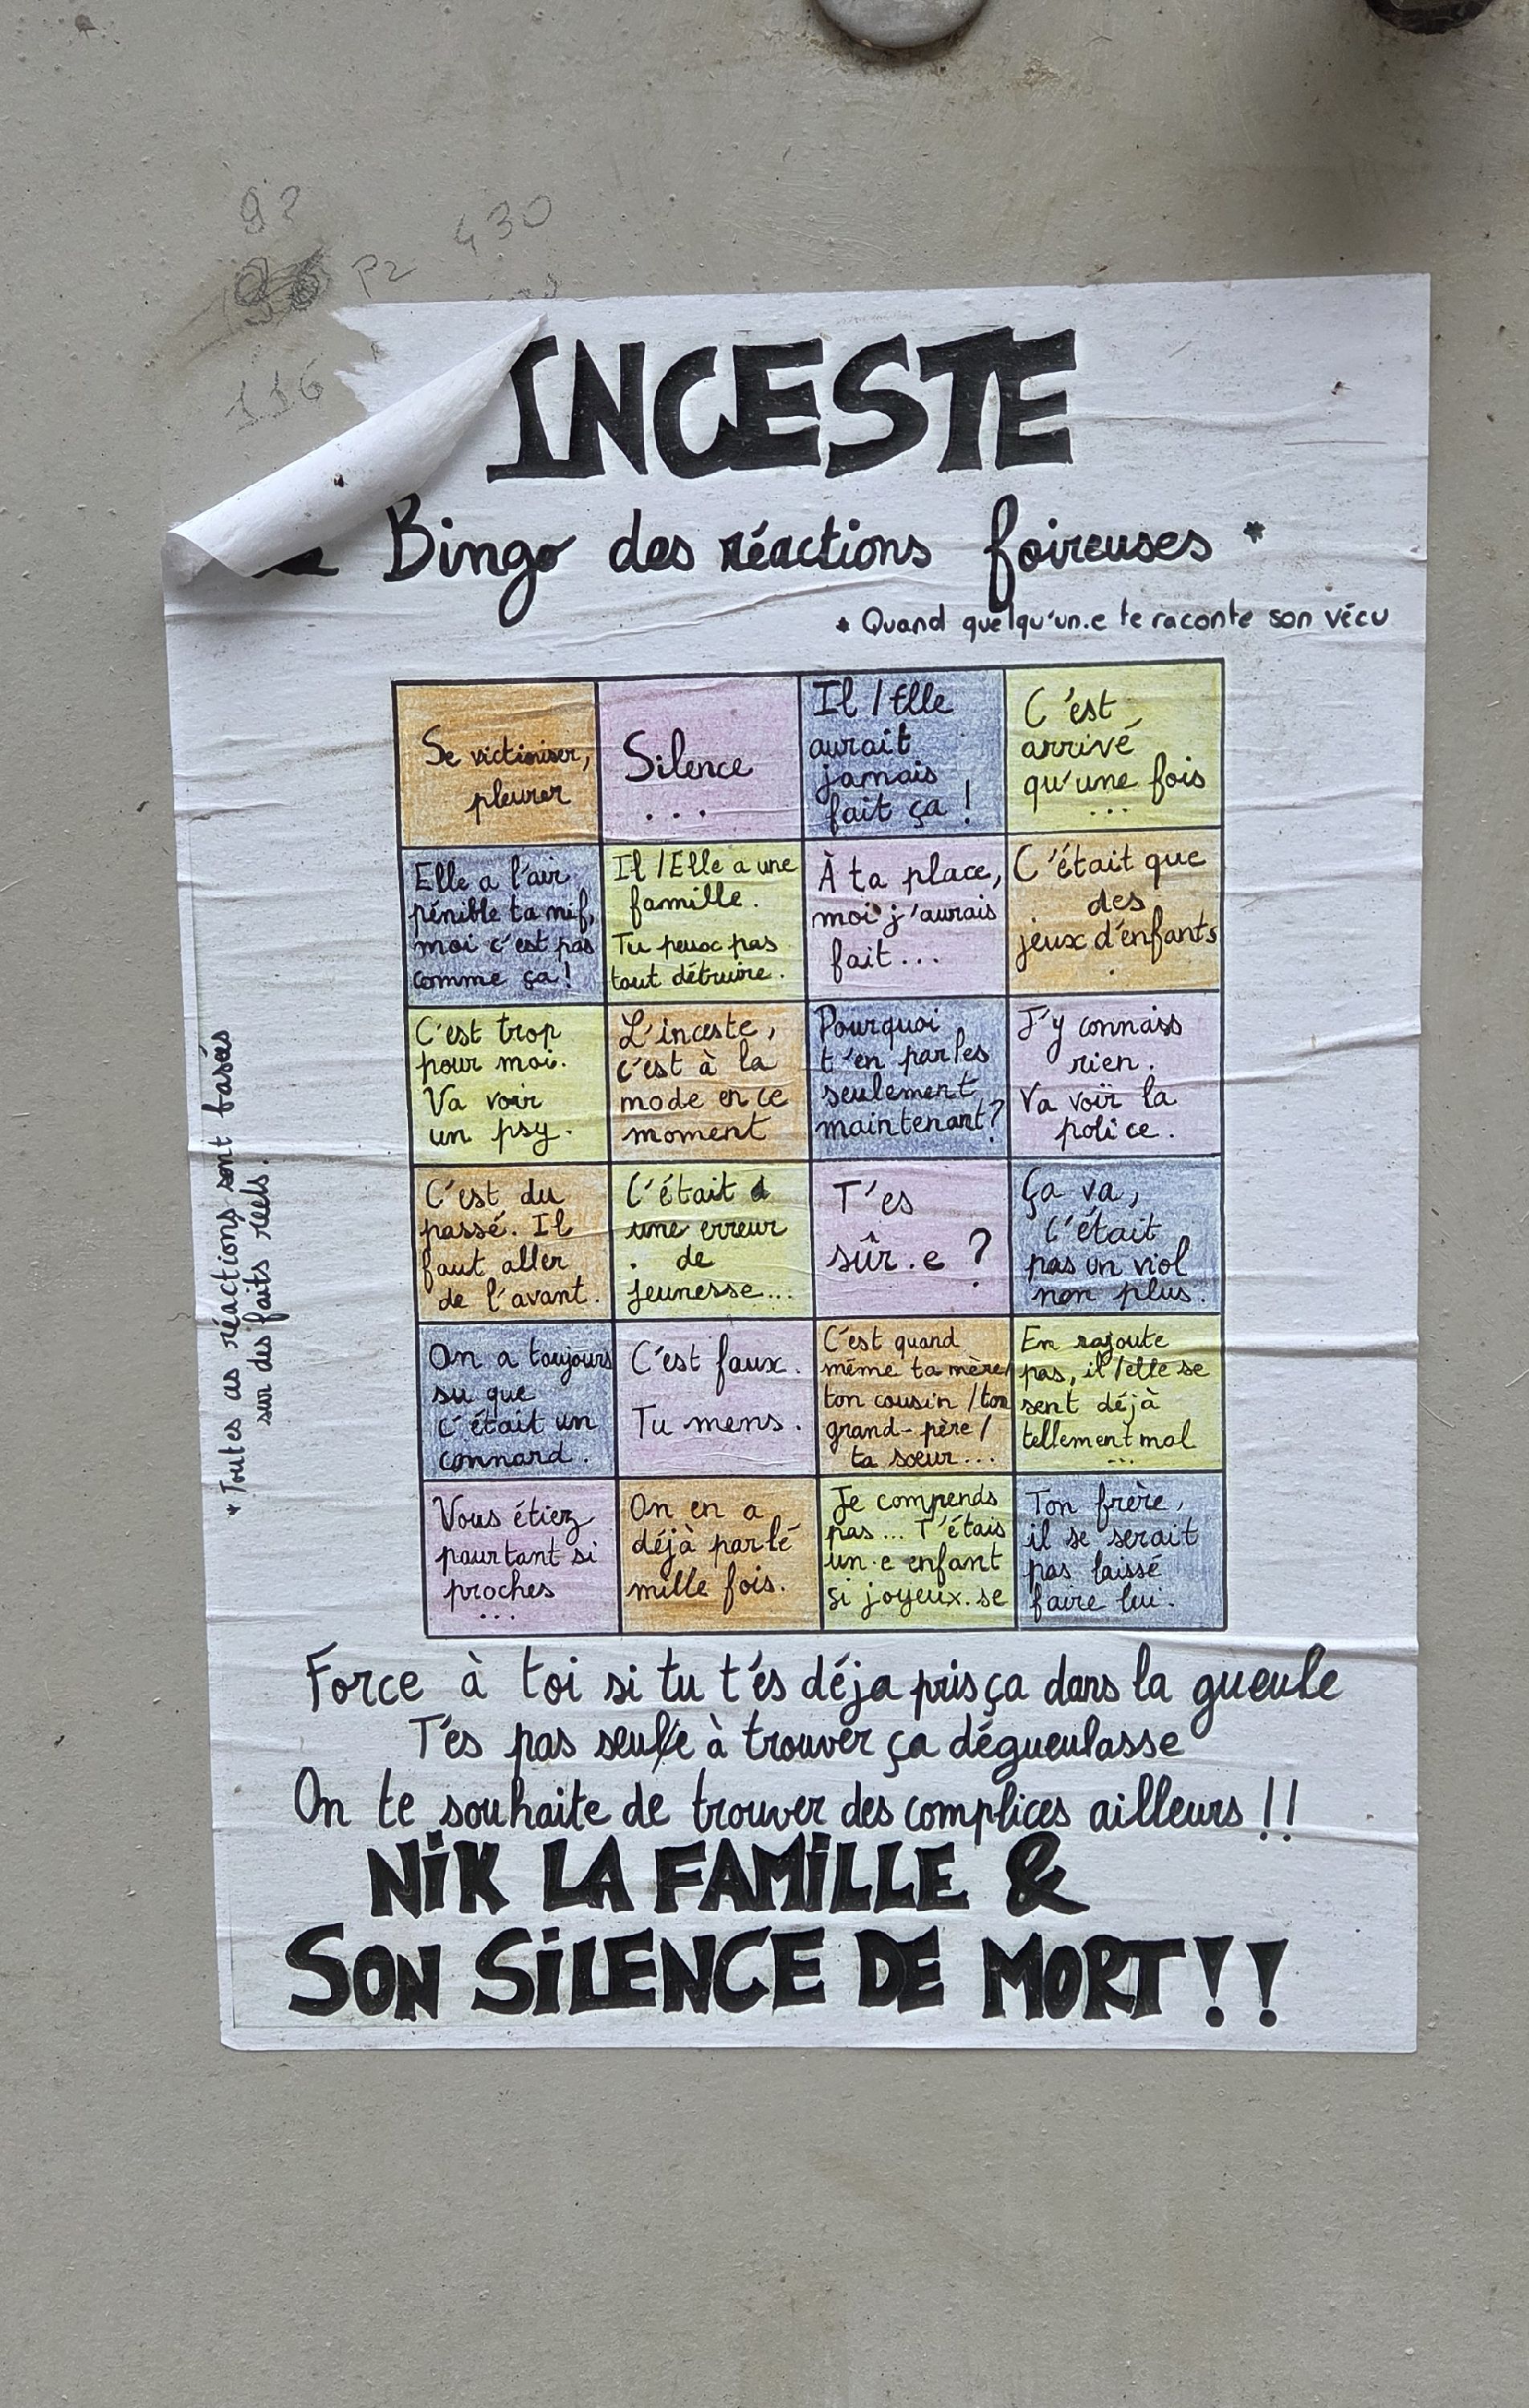 92
P2
430
116
INCESTE
Bingo des réactions foireuses *
* Quand quelqu'un.e te raconte son vécu
Se victimiser,
pleurer
Silence
...
Il / Elle
aurait
jamais
fait ça !
C'est
arrivé
qu'une fois
...
Elle a l'air
pénible ta mif,
moi c'est pas
comme ça !
Il / Elle a une
famille.
Tu peux pas
tout détruire.
À ta place,
moi j'aurais
fait...
C'était que
des
jeux d'enfants
.
C'est trop
pour moi.
Va voir
un psy.
L'inceste,
c'est à la
mode en ce
moment
Pourquoi
t'en parles
seulement
maintenant ?
J'y connais
rien.
Va voir la
police.
C'est du
passé. Il
faut aller
de l'avant.
C'était
une erreur
de
jeunesse...
T'es
sûr.e ?
Ça va,
c'était
pas un viol
non plus.
On a toujours
su que
c'était un
connard.
C'est faux.
Tu mens.
C'est quand
même ta mère/
ton cousin / ton
grand-père /
ta soeur...
En rajoute
pas, il/elle se
sent déjà
tellement mal
...
Vous étiez
pourtant si
proches
...
On en a
déjà parlé
mille fois.
Je comprends
pas... T'étais
un.e enfant
si joyeux.se
Ton frère,
il se serait
pas laissé
faire lui.
* Toutes ces réactions sont basées
sur des faits réels.
Force à toi si tu t'es déja pris ça dans la gueule
T'es pas seul/e à trouver ça dégueulasse
On te souhaite de trouver des complices ailleurs !!
NiK LA FAMiLLE &
SON SiLENCE DE MORT !!